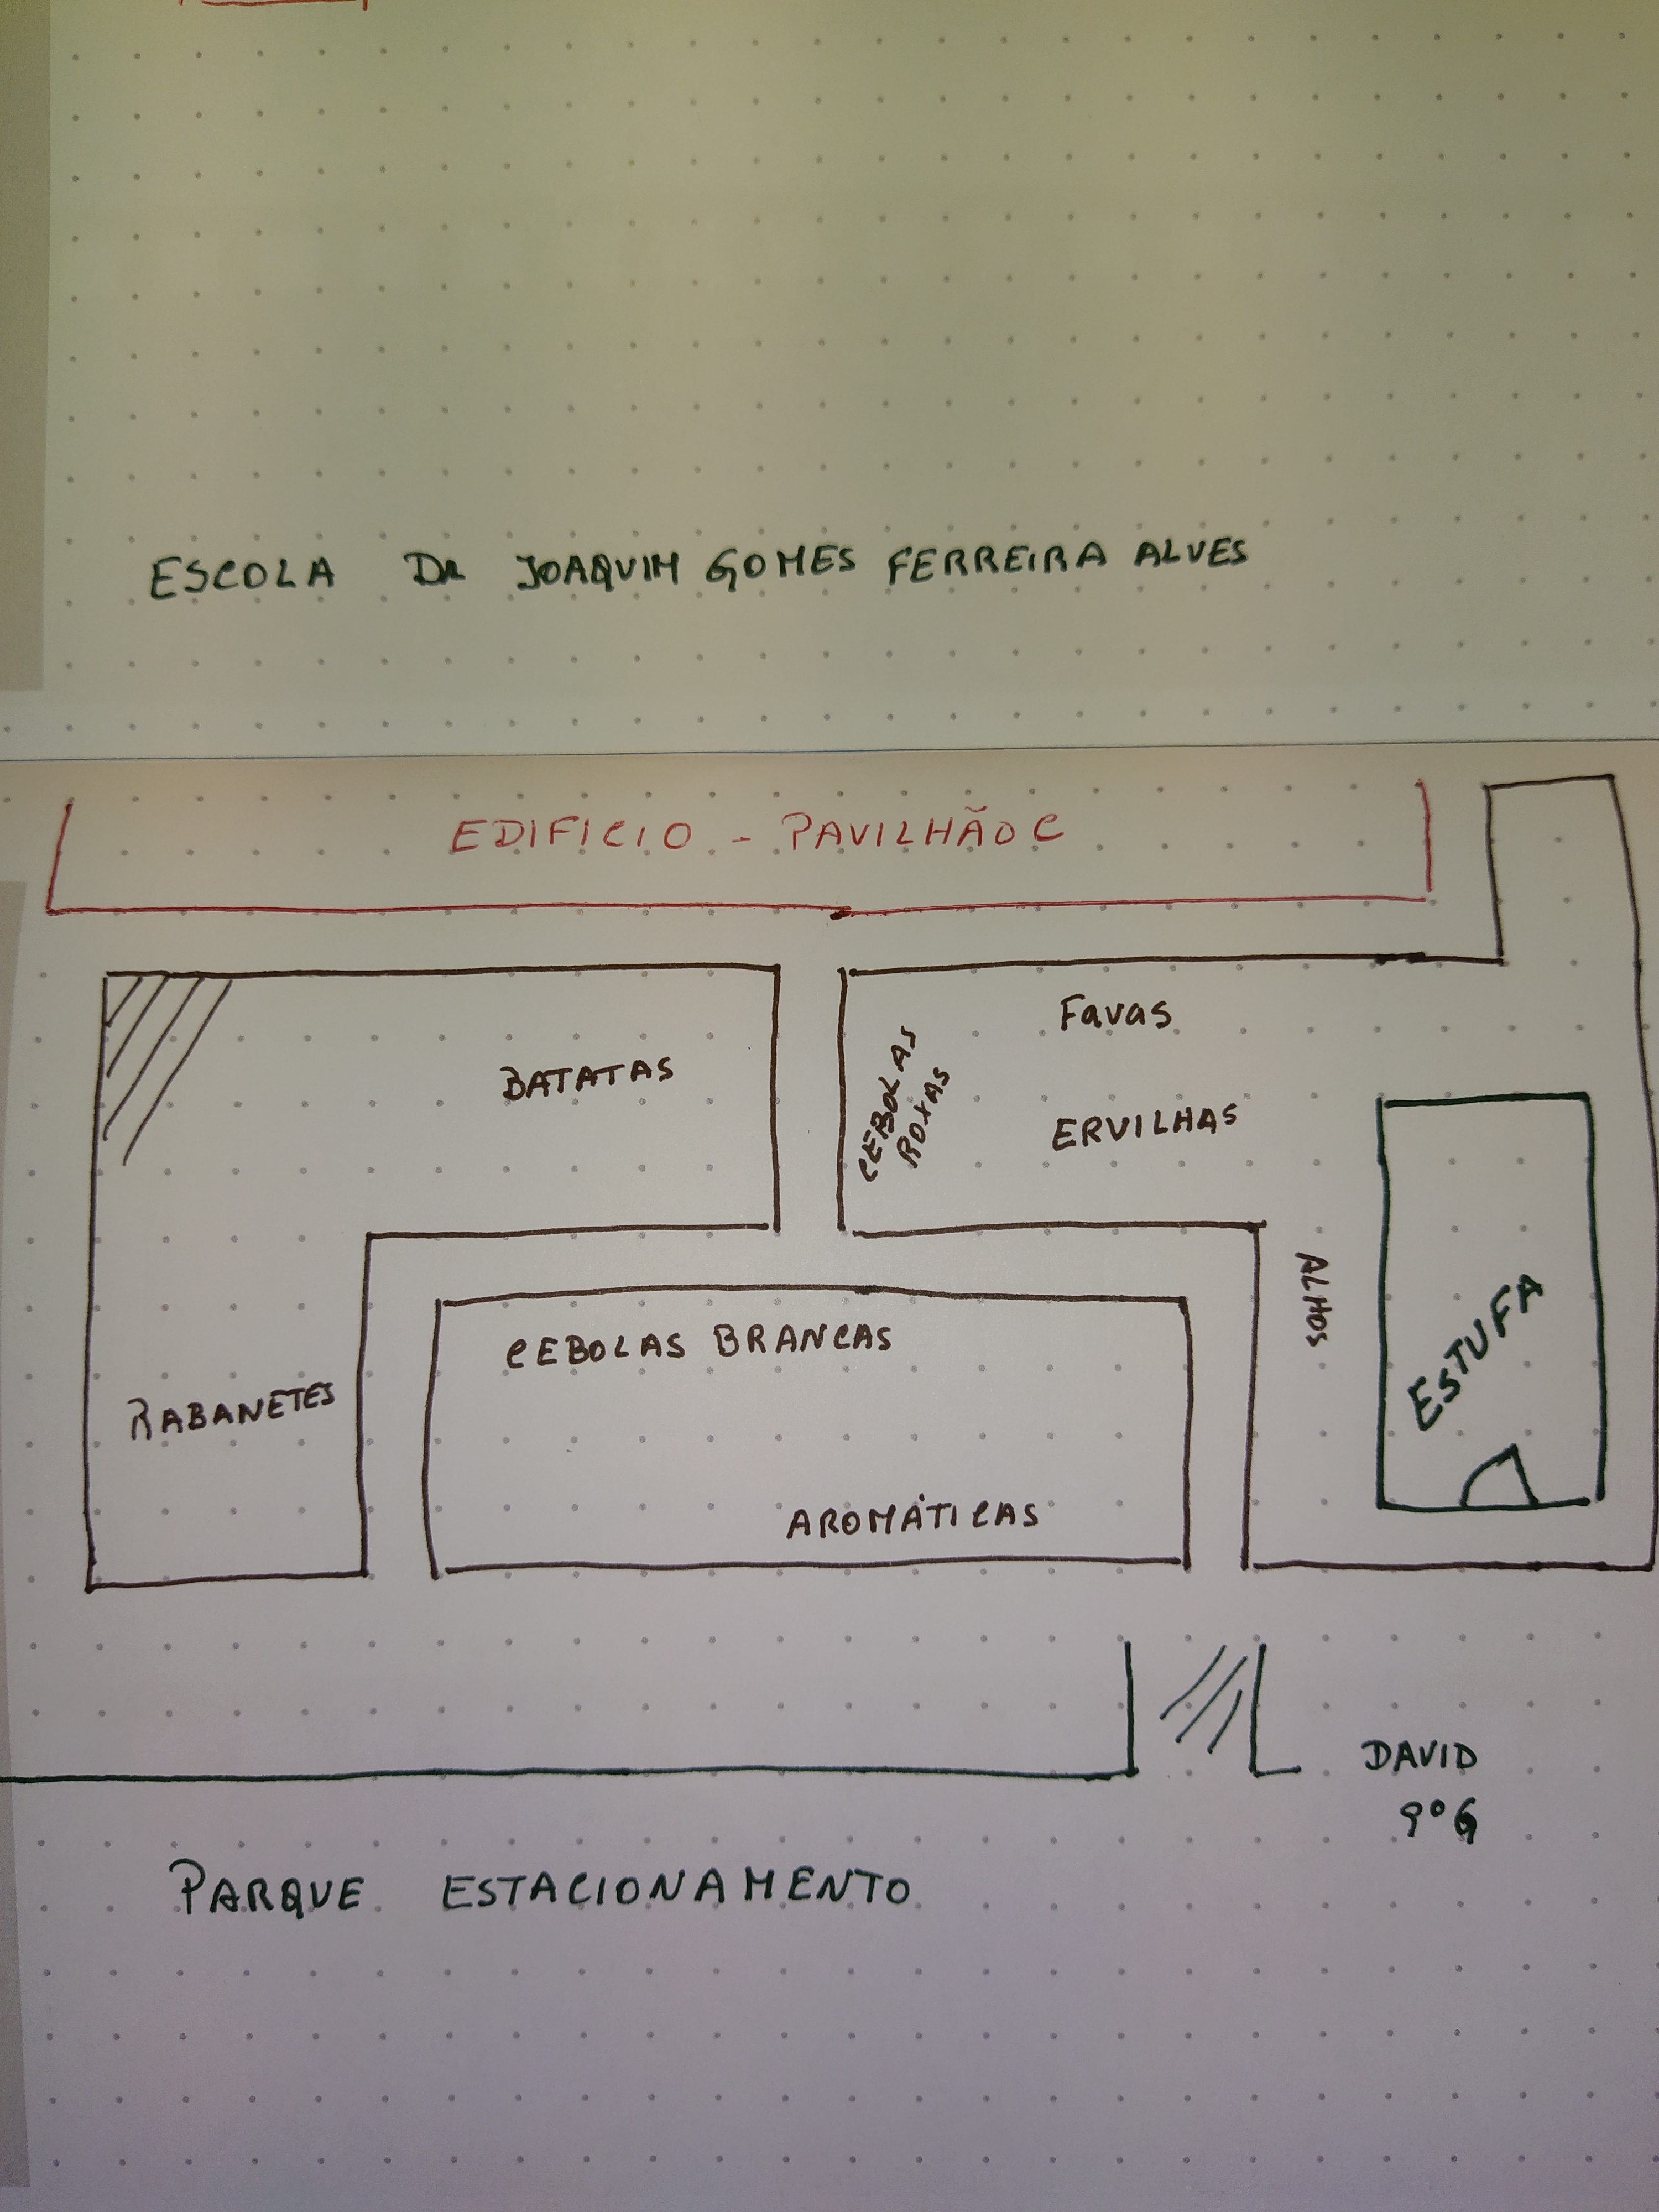 ESCOLA DR JOAQUIM GOMES FERREIRA ALVES
EDIFICIO - PAVILHÃO C
Favas
BATATAS
CEBOLAS
ROXAS
ERVILHAS
ALHOS
ESTUFA
CEBOLAS BRANCAS
RABANETES
AROMÁTICAS
DAVID
9º G
PARQUE ESTACIONAMENTO